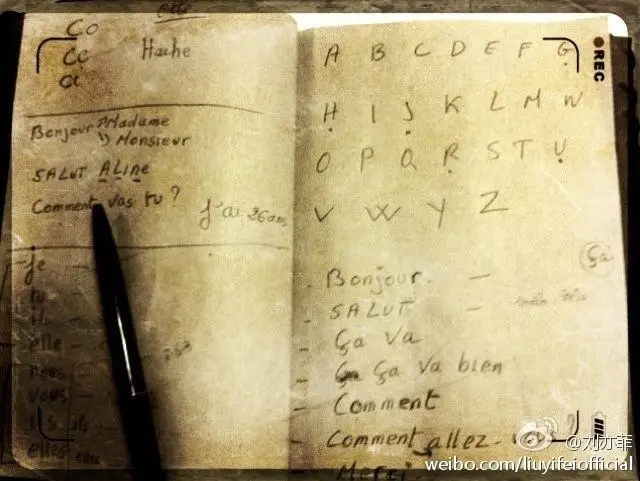 Co
Ce
Hache
Bonjour Madame
Monsieur
SALUT ALine
Comment vas tu ?
J'ai 26 ans
je
tu
il
elle
nous
vous
elles
A B C D E F G
H I J K L M N
O P Q R S T U
V W Y Z
Ça
Bonjour. —
SALUT —
- Ça Va
- Ça Va bien
- Comment
- Comment allez-
- Merci
REC
@刘亦菲
weibo.com/liuyifeiofficial